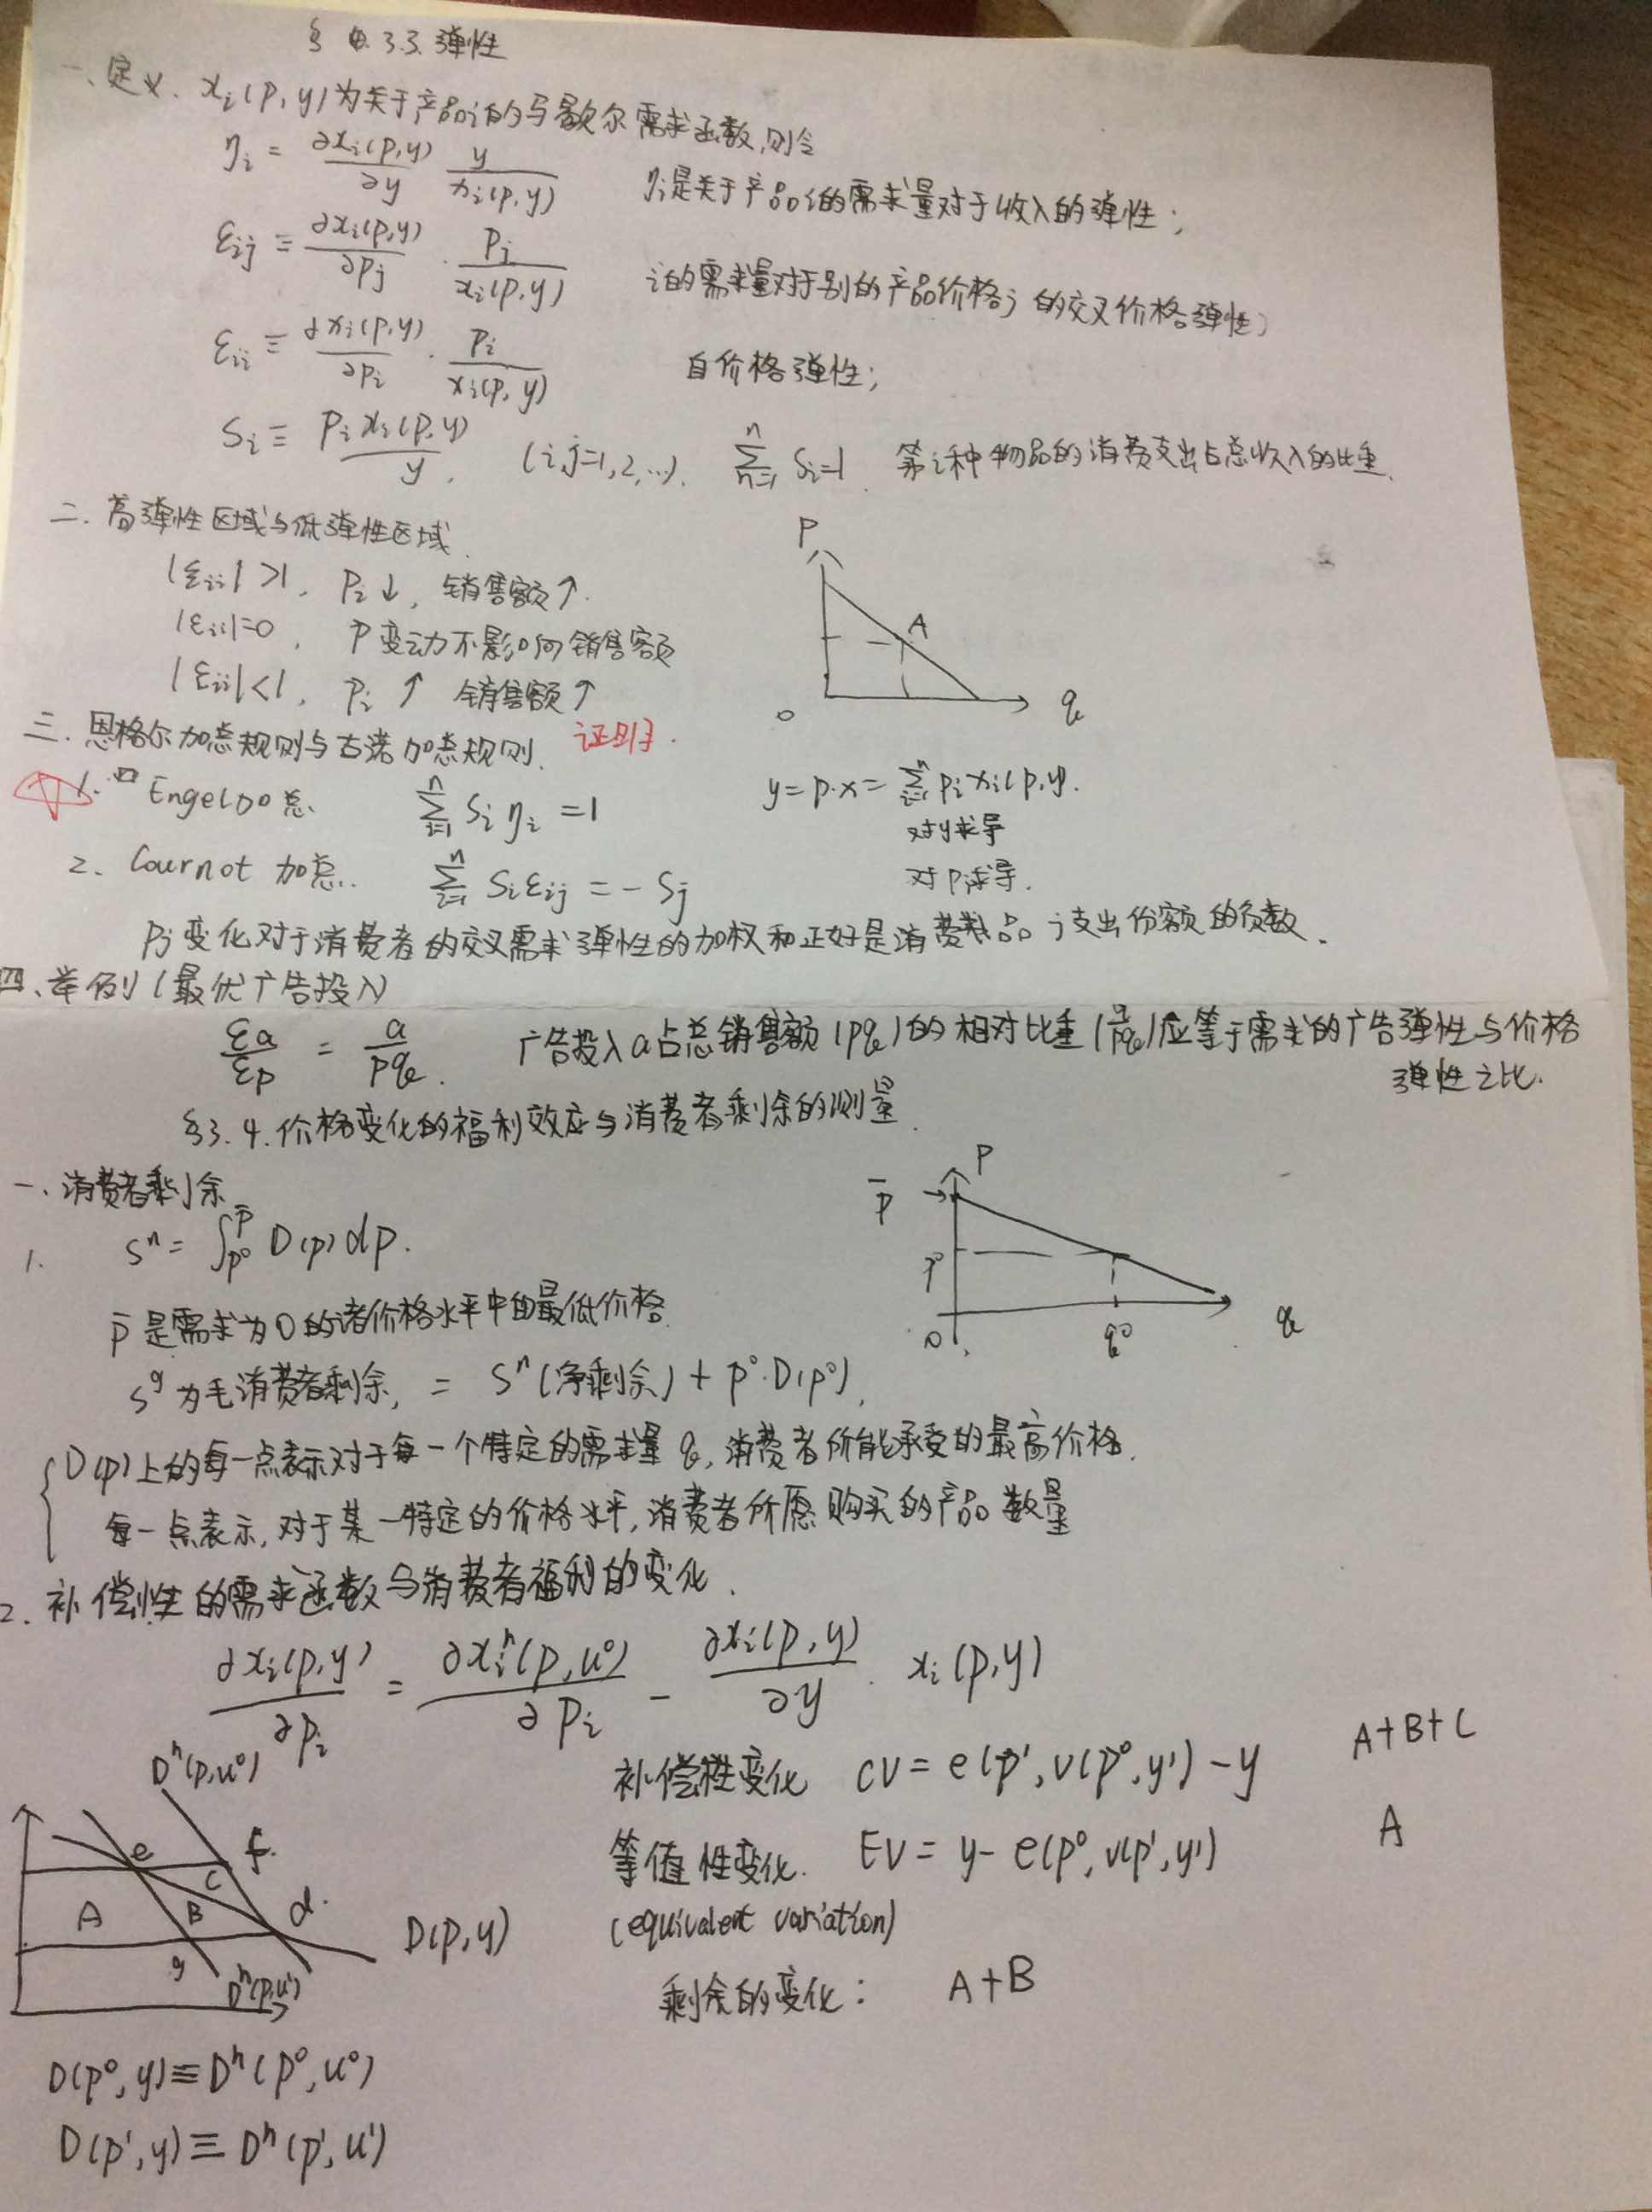 § 3.3. 弹性
一、定义. xᵢ(p,y)为关于产品i的马歇尔需求函数,则令
ηᵢ = ∂xᵢ(p,y)/∂y y/xᵢ(p,y) ηᵢ是关于产品i的需求量对于收入的弹性;
εᵢⱼ ≡ ∂xᵢ(p,y)/∂pⱼ · pⱼ/xᵢ(p,y) i的需求量对于别的产品价格j的交叉价格弹性)
εᵢᵢ ≡ ∂xᵢ(p,y)/∂pᵢ · pᵢ/xᵢ(p,y) 自价格弹性;
Sᵢ ≡ pᵢxᵢ(p,y)/y, (i,j=1,2,…). Σⁿₙ₌₁ Sᵢ=1. 第i种物品的消费支出占总收入的比重.
二. 高弹性区域与低弹性区域.
|εᵢᵢ|>1, pᵢ↓, 销售额↑.
|εᵢᵢ|=0, P变动不影响销售额
|εᵢᵢ|<1, pᵢ↑ 销售额↑
P
A
0
q
三. 恩格尔加总规则与古诺加总规则. 证明.
1. Engel加总. Σⁿᵢ₌₁ Sᵢηᵢ =1
y=p·x= Σⁿᵢ₌₁ pᵢxᵢ(p,y).
对y求导
对pⱼ求导.
2. Cournot 加总. Σⁿᵢ₌₁ Sᵢεᵢⱼ = - Sⱼ
pⱼ变化对于消费者的交叉需求弹性的加权和正好是消费品j支出份额的负数.
四、举例(最优广告投入)
εa/εp = a/pq. 广告投入a占总销售额(pq)的相对比重(a/pq)应等于需求的广告弹性与价格
弹性之比.
§3.4.价格变化的福利效应与消费者剩余的测量
一、消费者剩余
1. Sⁿ= ∫_{p⁰}^{p̄} D(p)dp.
p̄是需求为0的诸价格水平中的最低价格.
Sᵍ为毛消费者剩余, = Sⁿ(净剩余)+p⁰·D(p⁰).
P
p̄
p⁰
0
q⁰
q
D(p)上的每一点表示对于每一个特定的需求量q,消费者所能承受的最高价格.
每一点表示,对于某一特定的价格水平,消费者所愿购买的产品数量
2. 补偿性的需求函数与消费者福利的变化.
∂xᵢ(p,y)/∂pᵢ = ∂xᵢʰ(p,u⁰)/∂pᵢ - ∂xᵢ(p,y)/∂y · xᵢ(p,y)
补偿性变化 CV= e(p',v(p⁰,y')-y A+B+C
等值性变化. EV= y- e(p⁰,v(p',y') A
(equivalent variation)
剩余的变化: A+B
Dʰ(p,u⁰)
e
f.
A
B
C
d.
g
Dʰ(p,u')
D(p,y)
D(p⁰,y)≡Dʰ(p⁰,u⁰)
D(p',y)≡Dʰ(p',u')